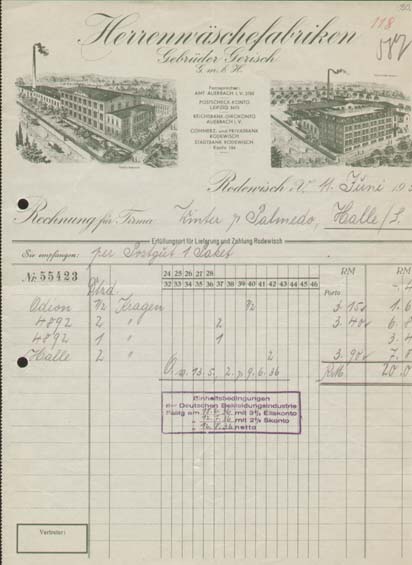 118
Herrenwäschefabriken
Gebrüder Gerisch
G. m. b. H.
Fernsprecher:
AMT AUERBACH i. V. 2760
POSTSCHECK-KONTO
LEIPZIG
REICHSBANK-GIROKONTO
AUERBACH i. V.
COMMERZ- und PRIVATBANK
RODEWISCH
STADTBANK RODEWISCH
Konto 164
Rodewisch i. V. 11. Juni 193
Rechnung für Firma Winter & Palmedo, Halle/S.
Erfüllungsort für Lieferung und Zahlung Rodewisch
Sie empfangen: per Postgut 1 Paket
Nr. 55423
24 25 26 27 28
32 33 34 35 36 37 38 39 40 41 42 43 44 45 46
RM RM
Dtzd. Porto
Odion ½ Kragen ½ 3.15
4892 2 " 2 3.40
4892 1 " 1
Halle 2 " 2 3.90
13.5. 9.6.36
RM
Einheitsbedingungen
der Deutschen Bekleidungsindustrie
Fällig am mit 3% Eilskonto
mit 2% Skonto
netto
Vertreter: